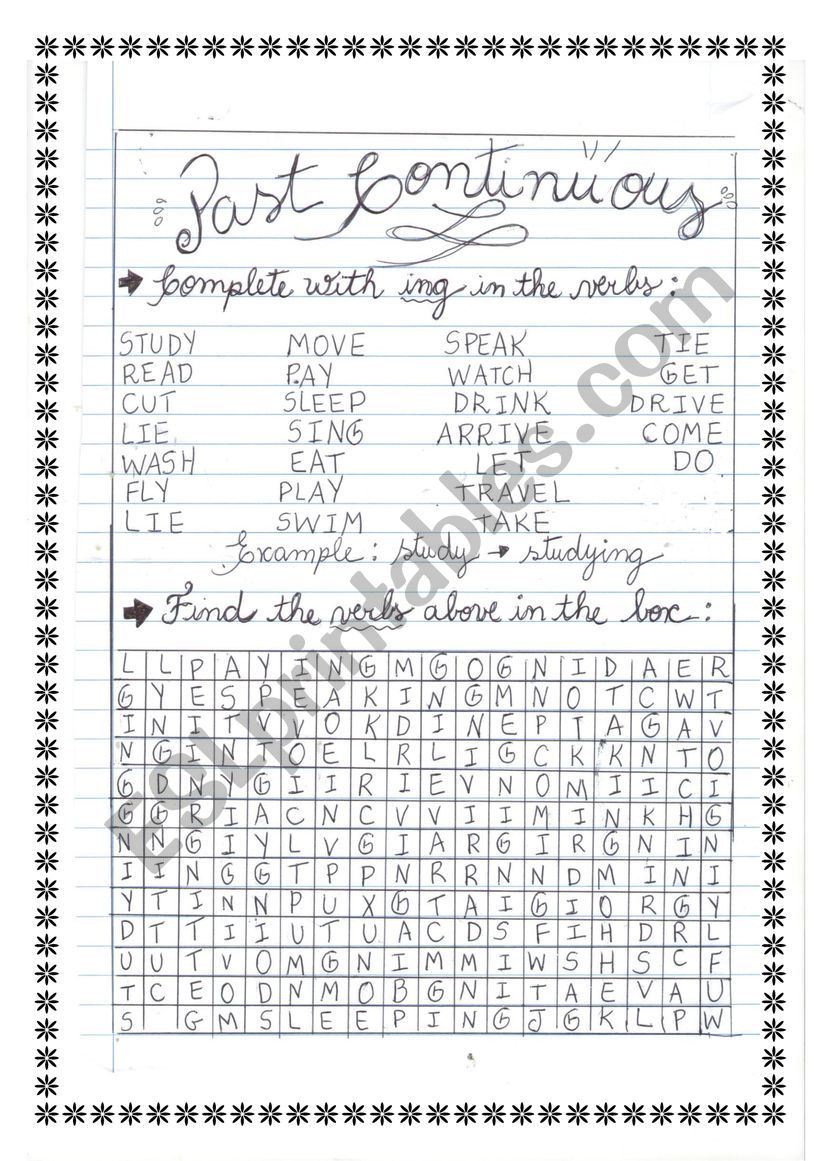 Past Continuous
Complete with ing in the verbs:
STUDY MOVE SPEAK TIE
READ PAY WATCH GET
CUT SLEEP DRINK DRIVE
LIE SING ARRIVE COME
WASH EAT LET DO
FLY PLAY TRAVEL
LIE SWIM TAKE
Example: study → studying
Find the verbs above in the box:
L L P A Y I N G M G O G N I D A E R
G Y E S P E A K I N G M N O T C W T
I N I T V V O K D I N E P T A G A V
N G I N T O E L R L I G C K K N T O
G D N Y G I I R I E V N O M I I C I
G G R I A C N C V V I I M I N K H G
N N G I Y L V G I A R G I R G N I N
I I N G G T P P N R R N N D M I N I
Y T I N N P U X G T A I G I O R G Y
D T T I I U T U A C D S F I H D R L
U U T V O M G N I M M I W S H S C F
T C E O D N M O B G N I T A E V A U
S G M S L E E P I N G J G K L P W
ESLprintables.com